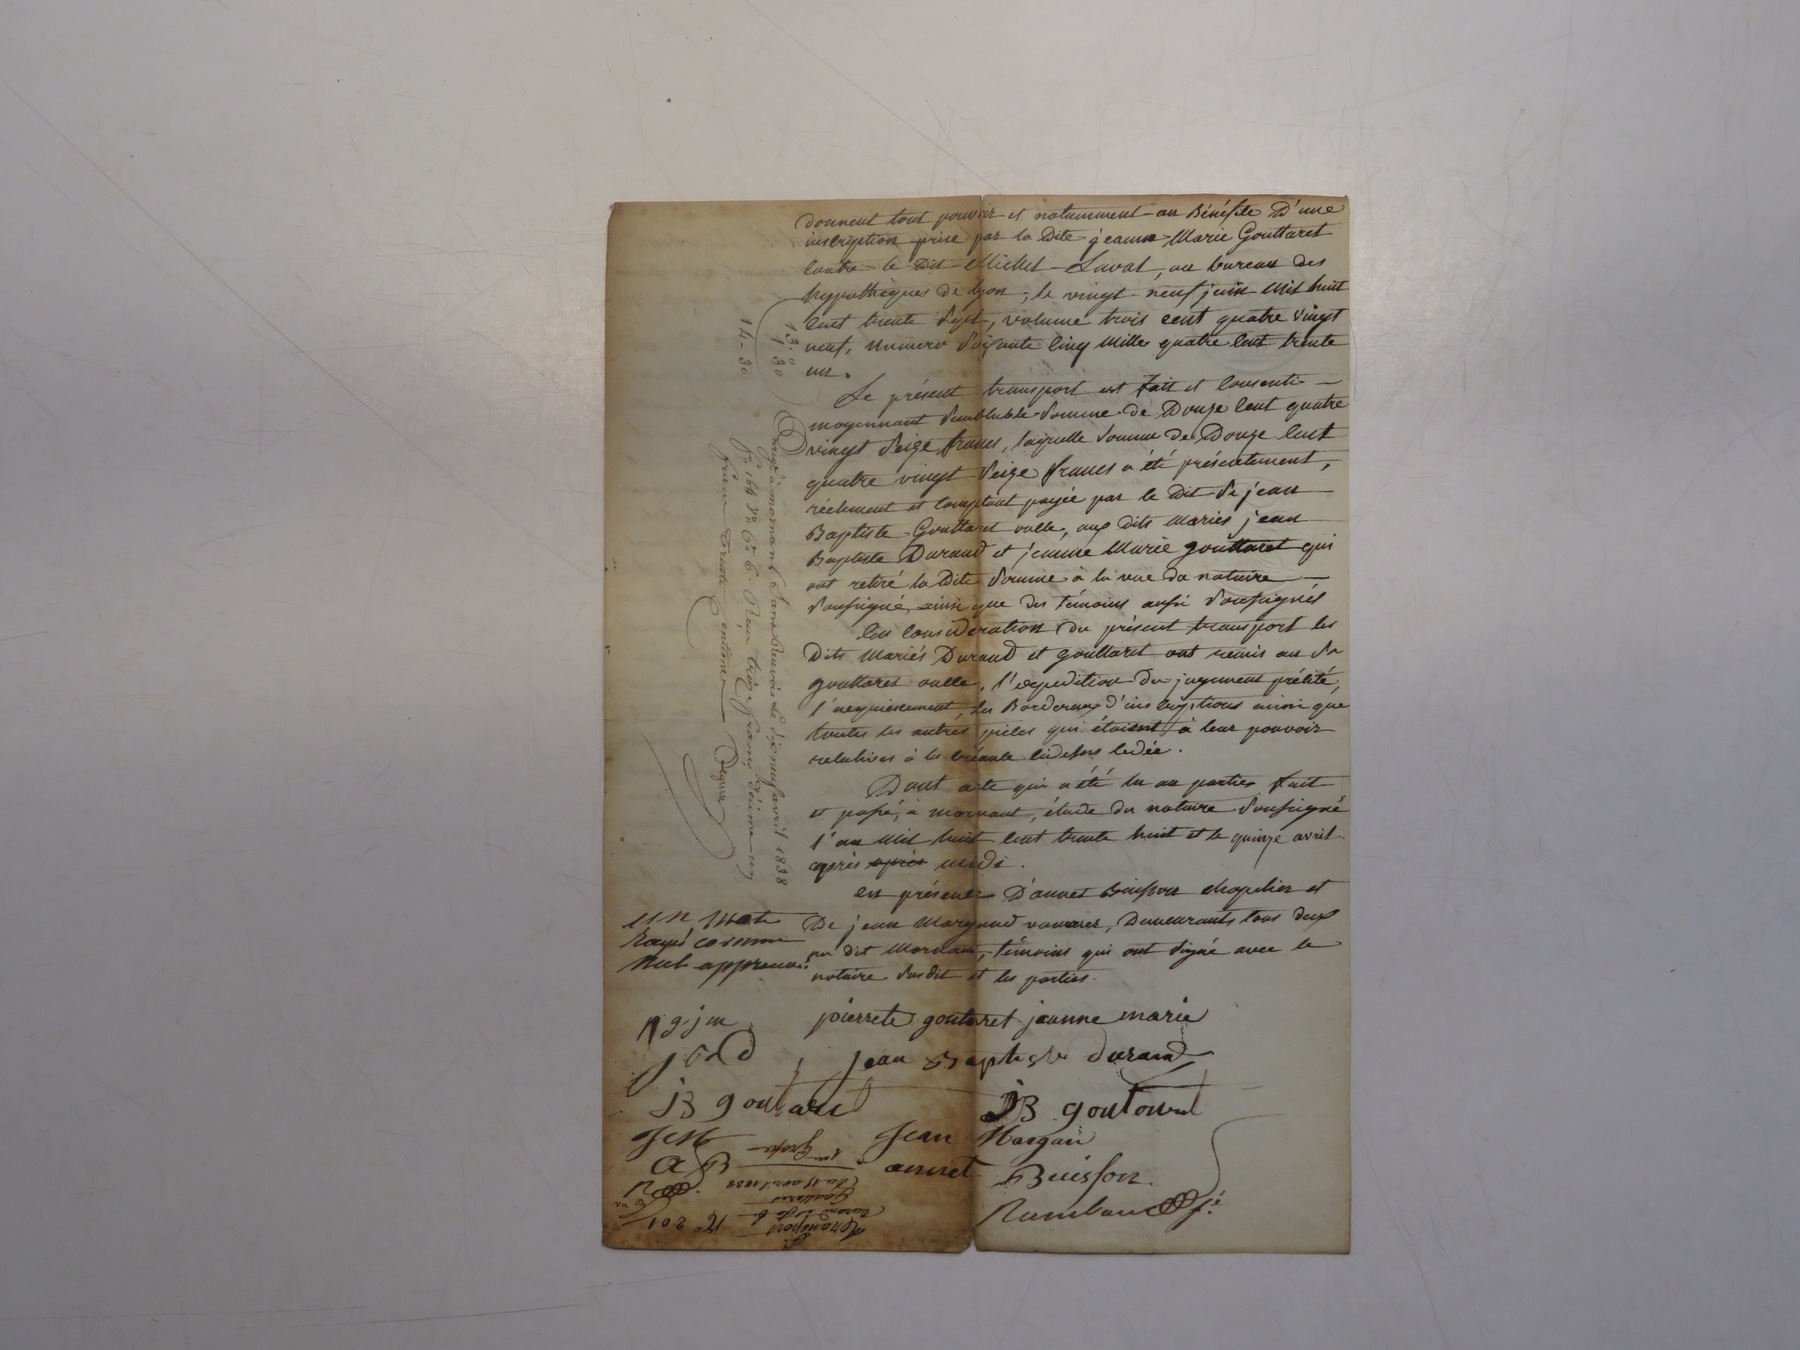 donnent tout pouvoir et notamment au Bénéfice D'une
inscription prise par la Dite jeanne Marie Gouttaret
contre le Dit Michel Laval, au bureau des
hypothèques de Lyon, le vingt neuf juin Mil huit
cent trente Sept, volume trois cent quatre vingt
neuf, Numéro Soixante Cinq Mille quatre Cent trente
un.
Le présent transport est fait et Consenti
moyennant Semblable Somme de Douze Cent quatre
vingt Seize francs, laquelle Somme de Douze Cent
quatre vingt Seize francs a été présentement,
réellement et Comptant payée par le Dit Sr jean
Baptiste Gouttaret oulle, aux dits Mariés jean
Baptiste Durand et jeanne Marie gouttaret qui
ont retiré la Dite Somme à la vue du notaire
Soussigné, ainsi que des témoins aussi Soussignés
En Considération du présent transport les
Dits Mariés Durand et gouttaret ont remis au Sr
gouttaret oulle, l'expedition du jugement précité,
l'acquiescement, les Bordereaux d'inscriptions ainsi que
toutes les autres pièces qui étaient à leur pouvoir
relatives à la créance cidessus cedée.
Dont acte qui a été lu au parties fait
et passé, à mornant, étude du notaire Soussigné
l'an Mil huit Cent trente huit et le quinze avril
après après midi.
en présence D'annet Buisson chapelier et
De jean Margand , Demeurants tous deux
au dit Mornant, témoins qui ont Signé avec le
notaire Susdit et les parties.
13 "
1 30
14 - 30
Enregé à mornant Sans Renvois Le dixneuf avril 1838
fo 164 Vo Ce 6. Reçu treize francs décime un
franc trente centimes
Un mot
Rayé comme
Nul approuvé
p g j m
pierrete goutaret jeanne marie
j B d
jean Baptiste durand
jB goutaret
JB goutaret
J M
Jean Margan
a B
annet Buisson
1ere Grosse
Du 15 avril 1838
Gouttaret
Durand
Transport
No 201